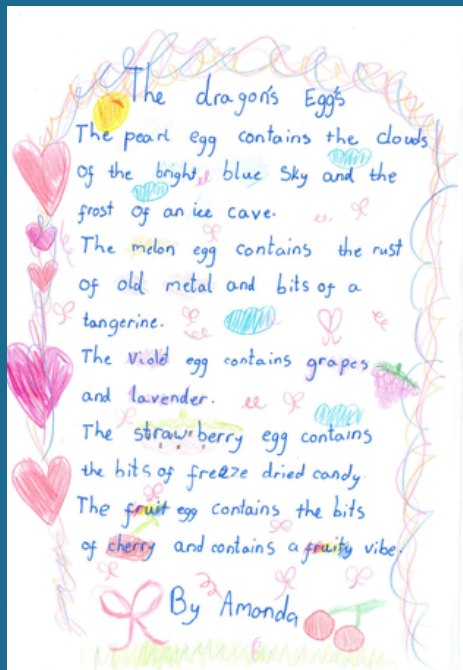 The dragon's Egg's
The pearl egg contains the clouds
Of the bright blue Sky and the
frost of an ice cave.
The melon egg contains the rust
Of old metal and bits of a
tangerine.
The violet egg contains grapes
and lavender.
The strawberry egg contains
the bits of freeze dried candy.
The fruit egg contains the bits
of cherry and contains a fruity vibe.
By Amanda